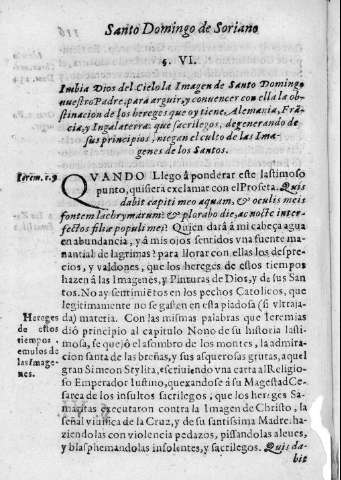 Santo Domingo de Soriano
§. VI.
Imbia Dios del Cielo la Imagen de Santo Domingo
nuestro Padre, para arguir, y conuencer con ella la ob-
stinacion de los hereges que oy tiene, Alemania, Frã-
cia, y Ingalaterra: que sacrilegos, degenerando de
sus principios, niegan el culto de las Ima-
genes de los Santos.
Ierem. c. 9
QVANDO Llego à ponderar este lastimoso
punto, quisiera exclamar con el Profeta. Quis
dabit capiti meo aquam, & oculis meis
fontem lachrymarum: & plorabo die, ac nocte inter-
fectos filiæ populi mei? Quien darà à mi cabeça agua
en abundancia, y à mis ojos sentidos vna fuente ma-
nantial de lagrimas? para llorar con ellas los despre-
cios, y valdones, que los hereges de estos tiempos
hazen à las Imagenes, y Pinturas de Dios, y de sus San-
tos. No ay sentimiẽtos en los pechos Catolicos, que
legitimamente no se gasten en esta piadosa (si vltraja-
da) materia. Con las mismas palabras que Ieremias
Hereges
de estos
tiempos
emulos de
las Image-
nes.
diò principio al capitulo Nono de su historia lasti-
mosa, se quejò el asombro de los montes, la admira-
cion santa de las breñas, y sus asquerosas grutas, aquel
gran Simeon Stylita, escriuiendo vna carta al Religio-
so Emperador Iustino, quexandose à su Magestad Ce-
sarea de los insultos sacrilegos, que los hereges Sa-
maritas executaron contra la Imagen de Christo, la
señal viuifica de la Cruz, y de su santissima Madre, ha-
ziendolas con violencia pedazos, pissandolas aleues,
y blasphemandolas insolentes, y sacrilegos. Quis da-
bit